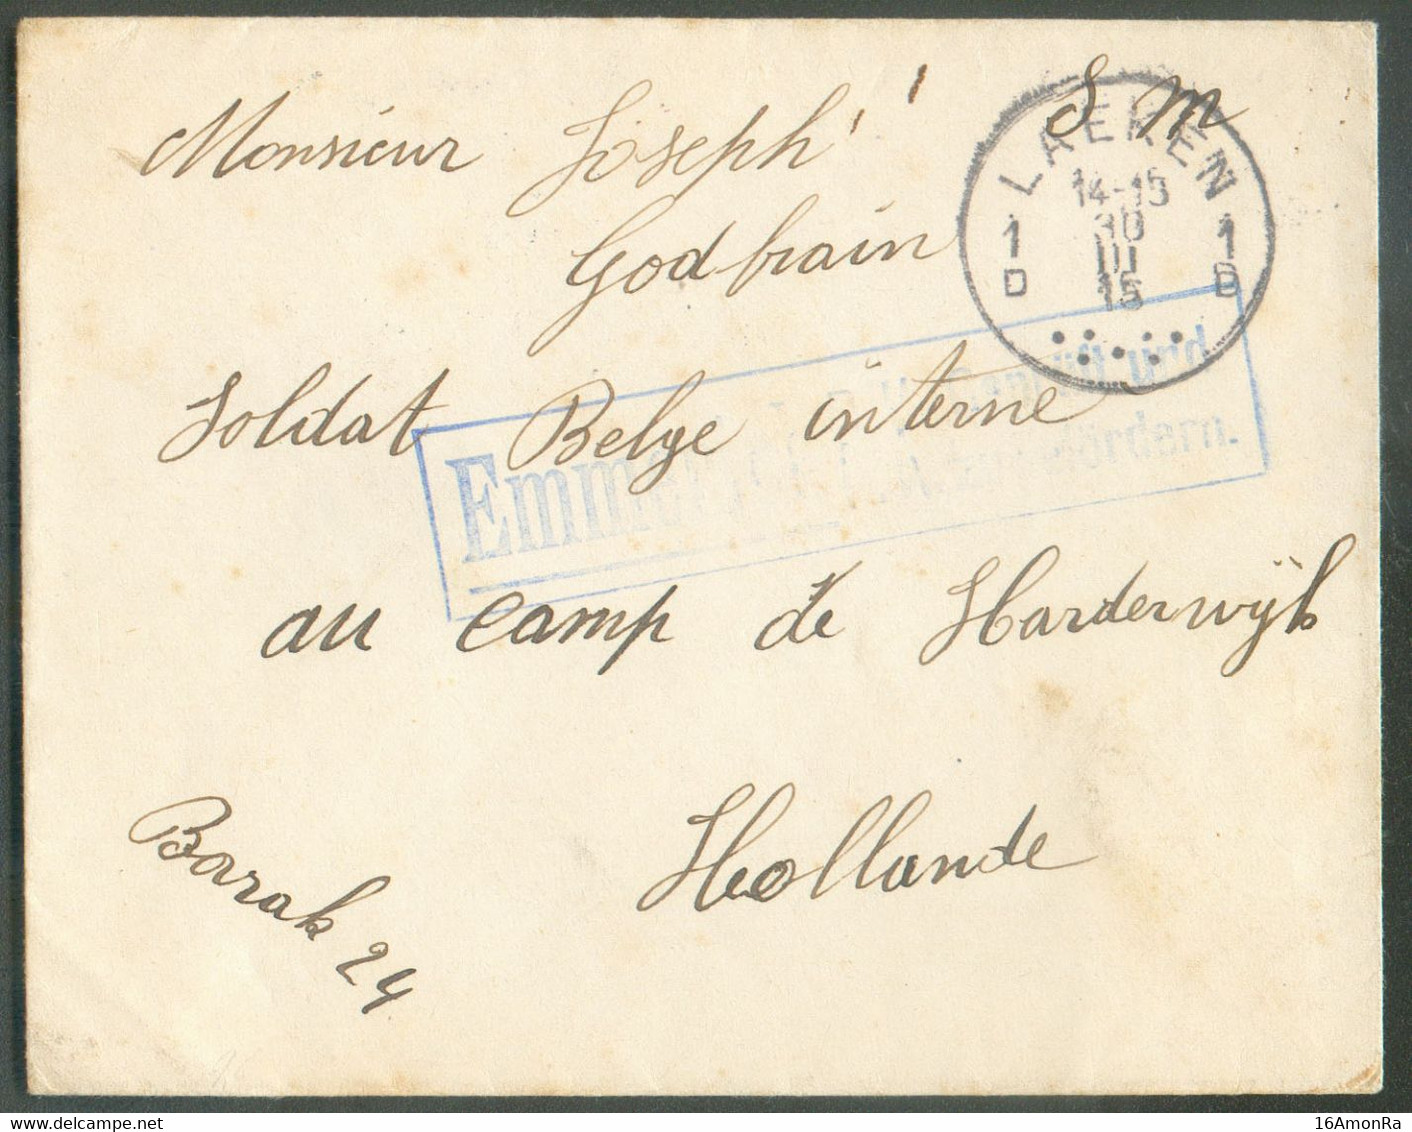 S m
Monsieur Joseph
Godfrain
LAEKEN
14-15
30
III
15
1 1
D B
Soldat Belge interne
Emmerich
und
au camp de Harderwÿk
Hollande
Barak 24
16AmonRa